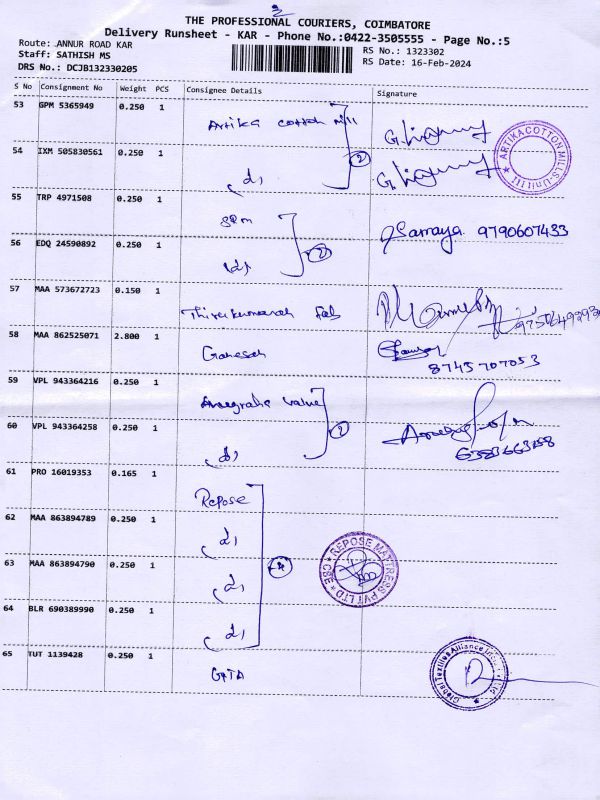 2
THE PROFESSIONAL COURIERS, COIMBATORE
Delivery Runsheet - KAR - Phone No.:0422-3505555 - Page No.:5
Route: ANNUR ROAD KAR
Staff: SATHISH MS
DRS No.: DCJB132330205
RS No.: 1323302
RS Date: 16-Feb-2024
S No Consignment No Weight PCS Consignee Details Signature
53 GPM 5365949 0.250 1 Artika cotton mill
54 IXM 505830561 0.250 1 (d) 2
ARTIKA COTTON MILLS-Unit III
55 TRP 4971508 0.250 1 Samaya 9790607433
56 EDQ 24590892 0.250 1 (d) 2
57 MAA 573672723 0.150 1 Thirukumaran Fab
58 MAA 862525071 2.800 1 Ganesh 8745707053
59 VPL 943364216 0.250 1 value
60 VPL 943364258 0.250 1 (d) 2
61 PRO 16019353 0.165 1 Repose
62 MAA 863894789 0.250 1 (d)
63 MAA 863894790 0.250 1 (d) 4
REPOSE MATTRESS PVT LTD * CBE *
64 BLR 690389990 0.250 1 (d)
65 TUT 1139428 0.250 1 GATA
Global Textiles Alliance